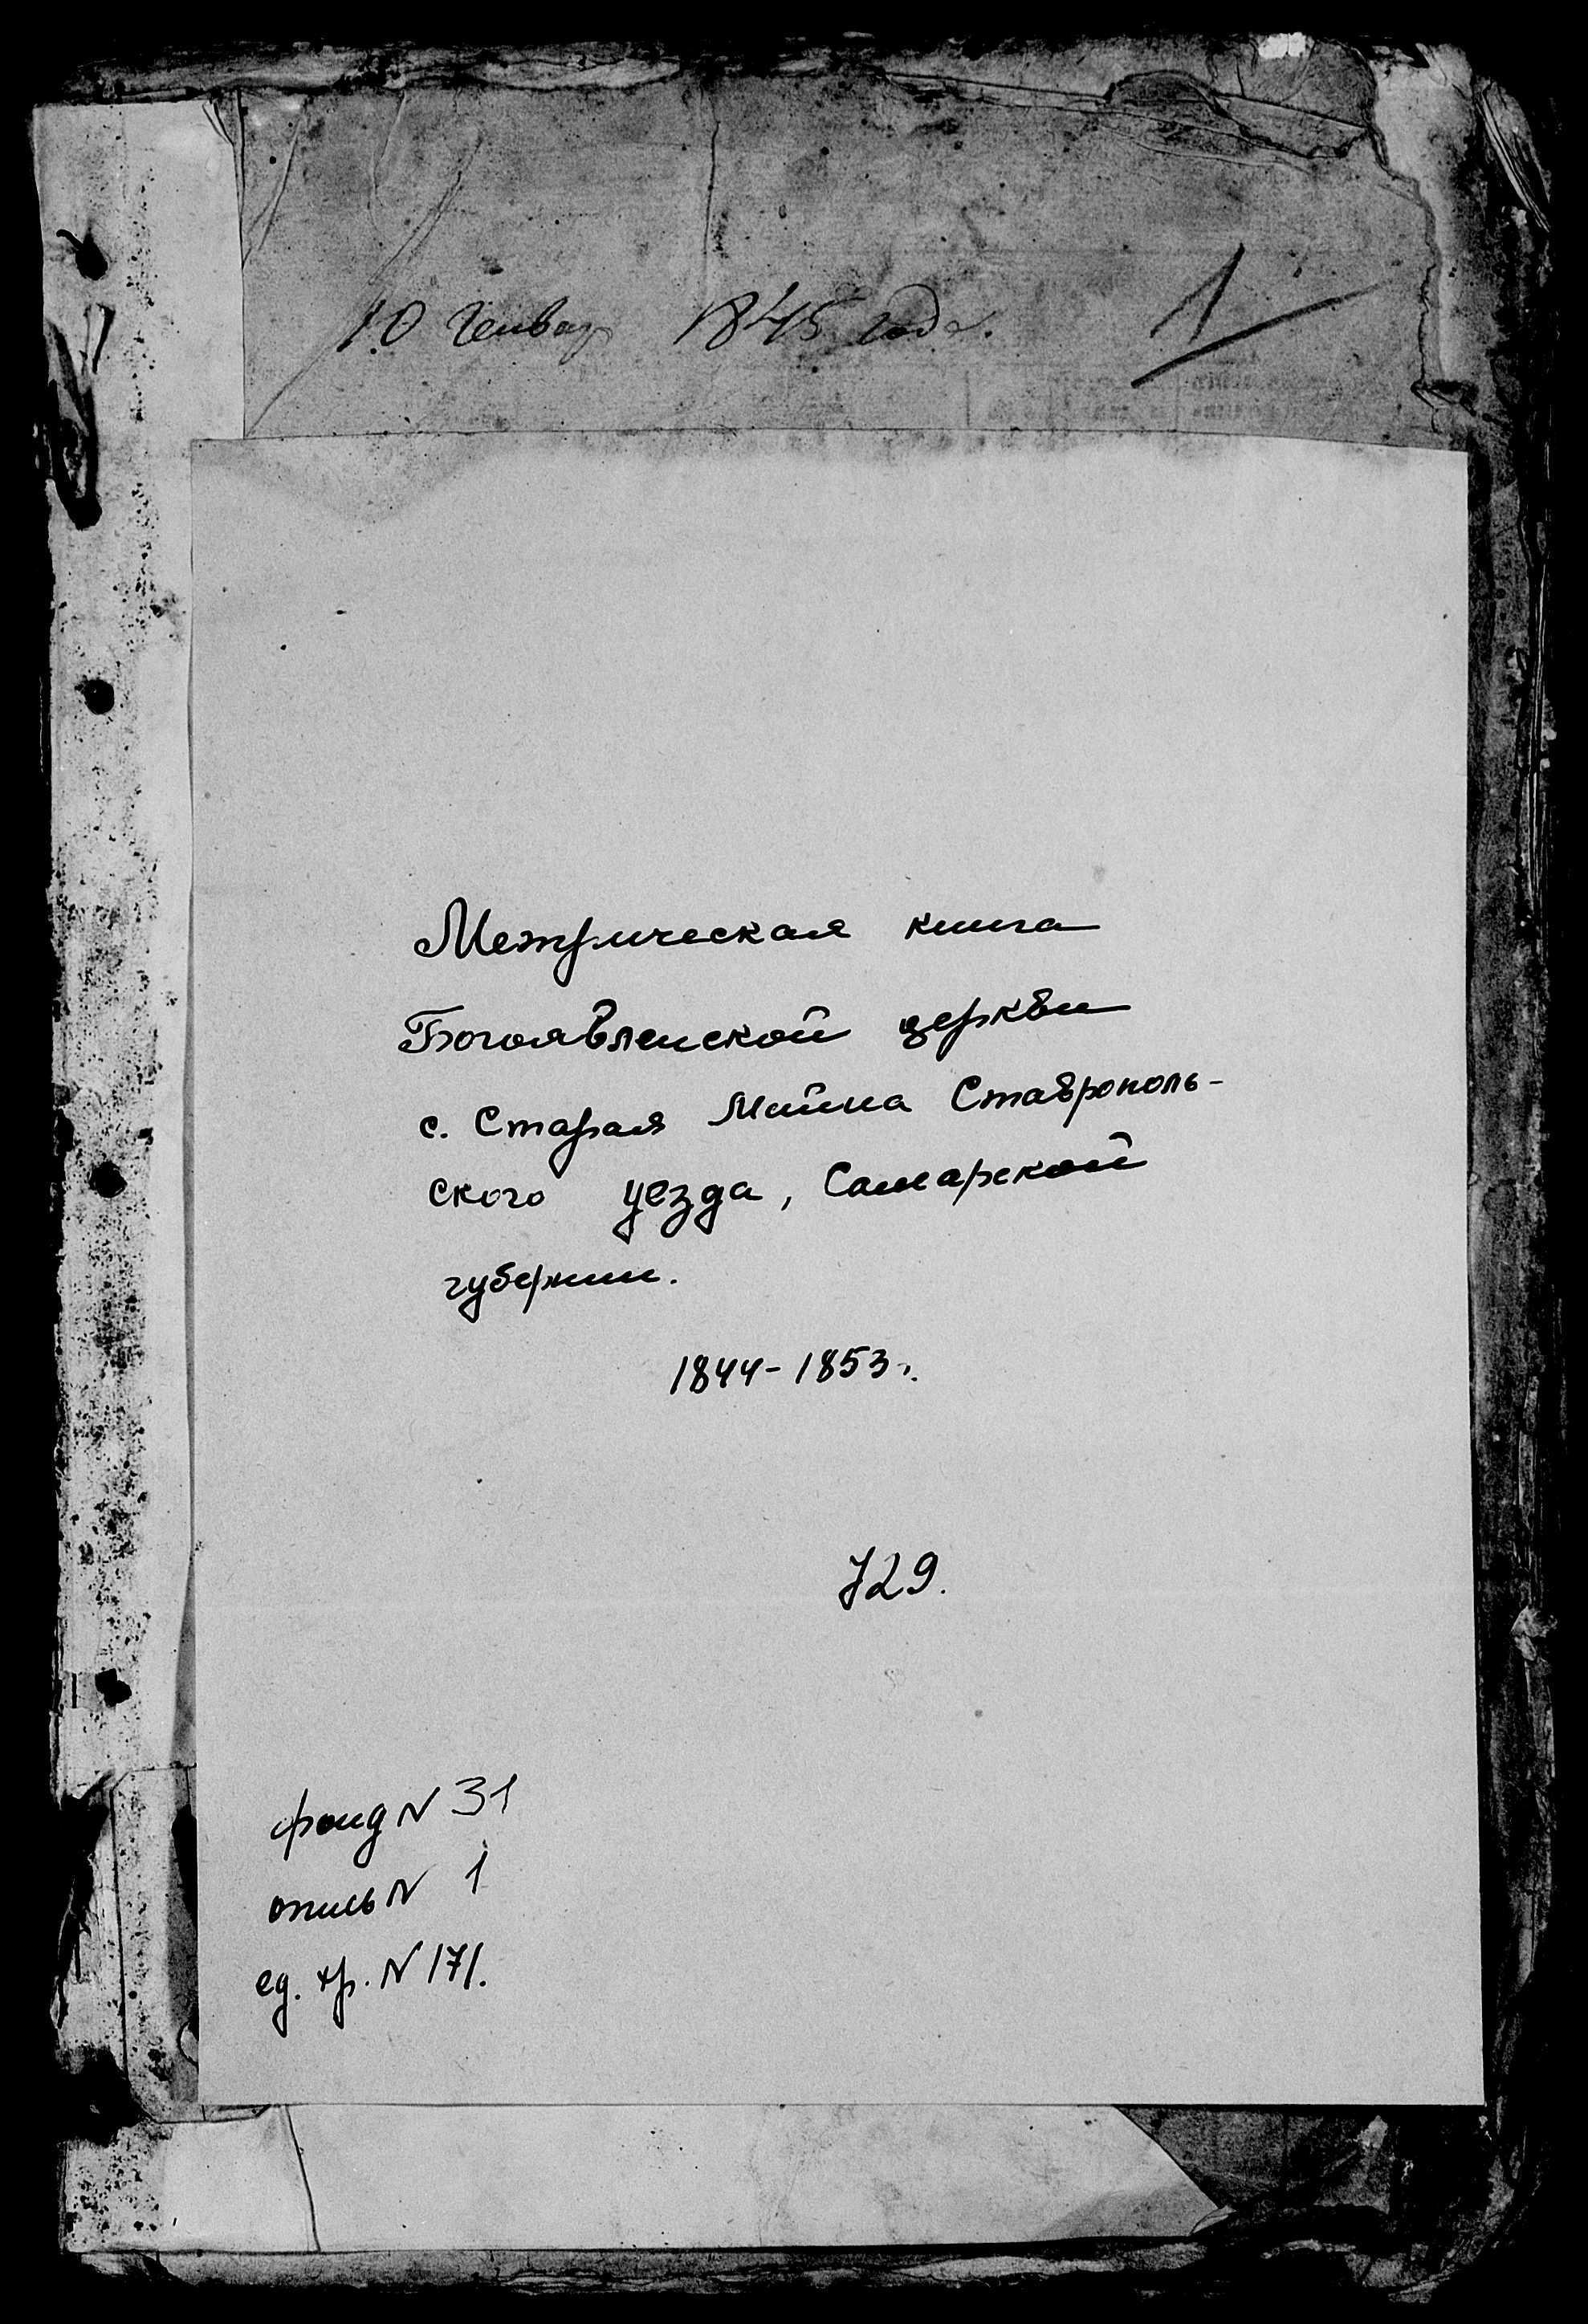 10 Генвар 1845 года.
1
Метрическая книга
Богоявленской церкви
с. Старая Майна Ставрополь-
ского уезда, Самарской
губернии.
1844-1853г.
729.
фонд N 31
опись N 1
ед. хр. N 171.